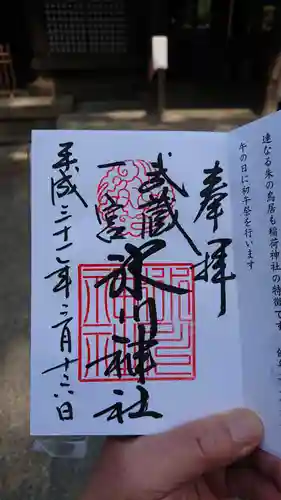 連なる朱の鳥居も稲荷神社の特徴です。
午の日に初午祭を行います
奉拝
武蔵
一宮
氷川神社
平成三十一年二月十六日